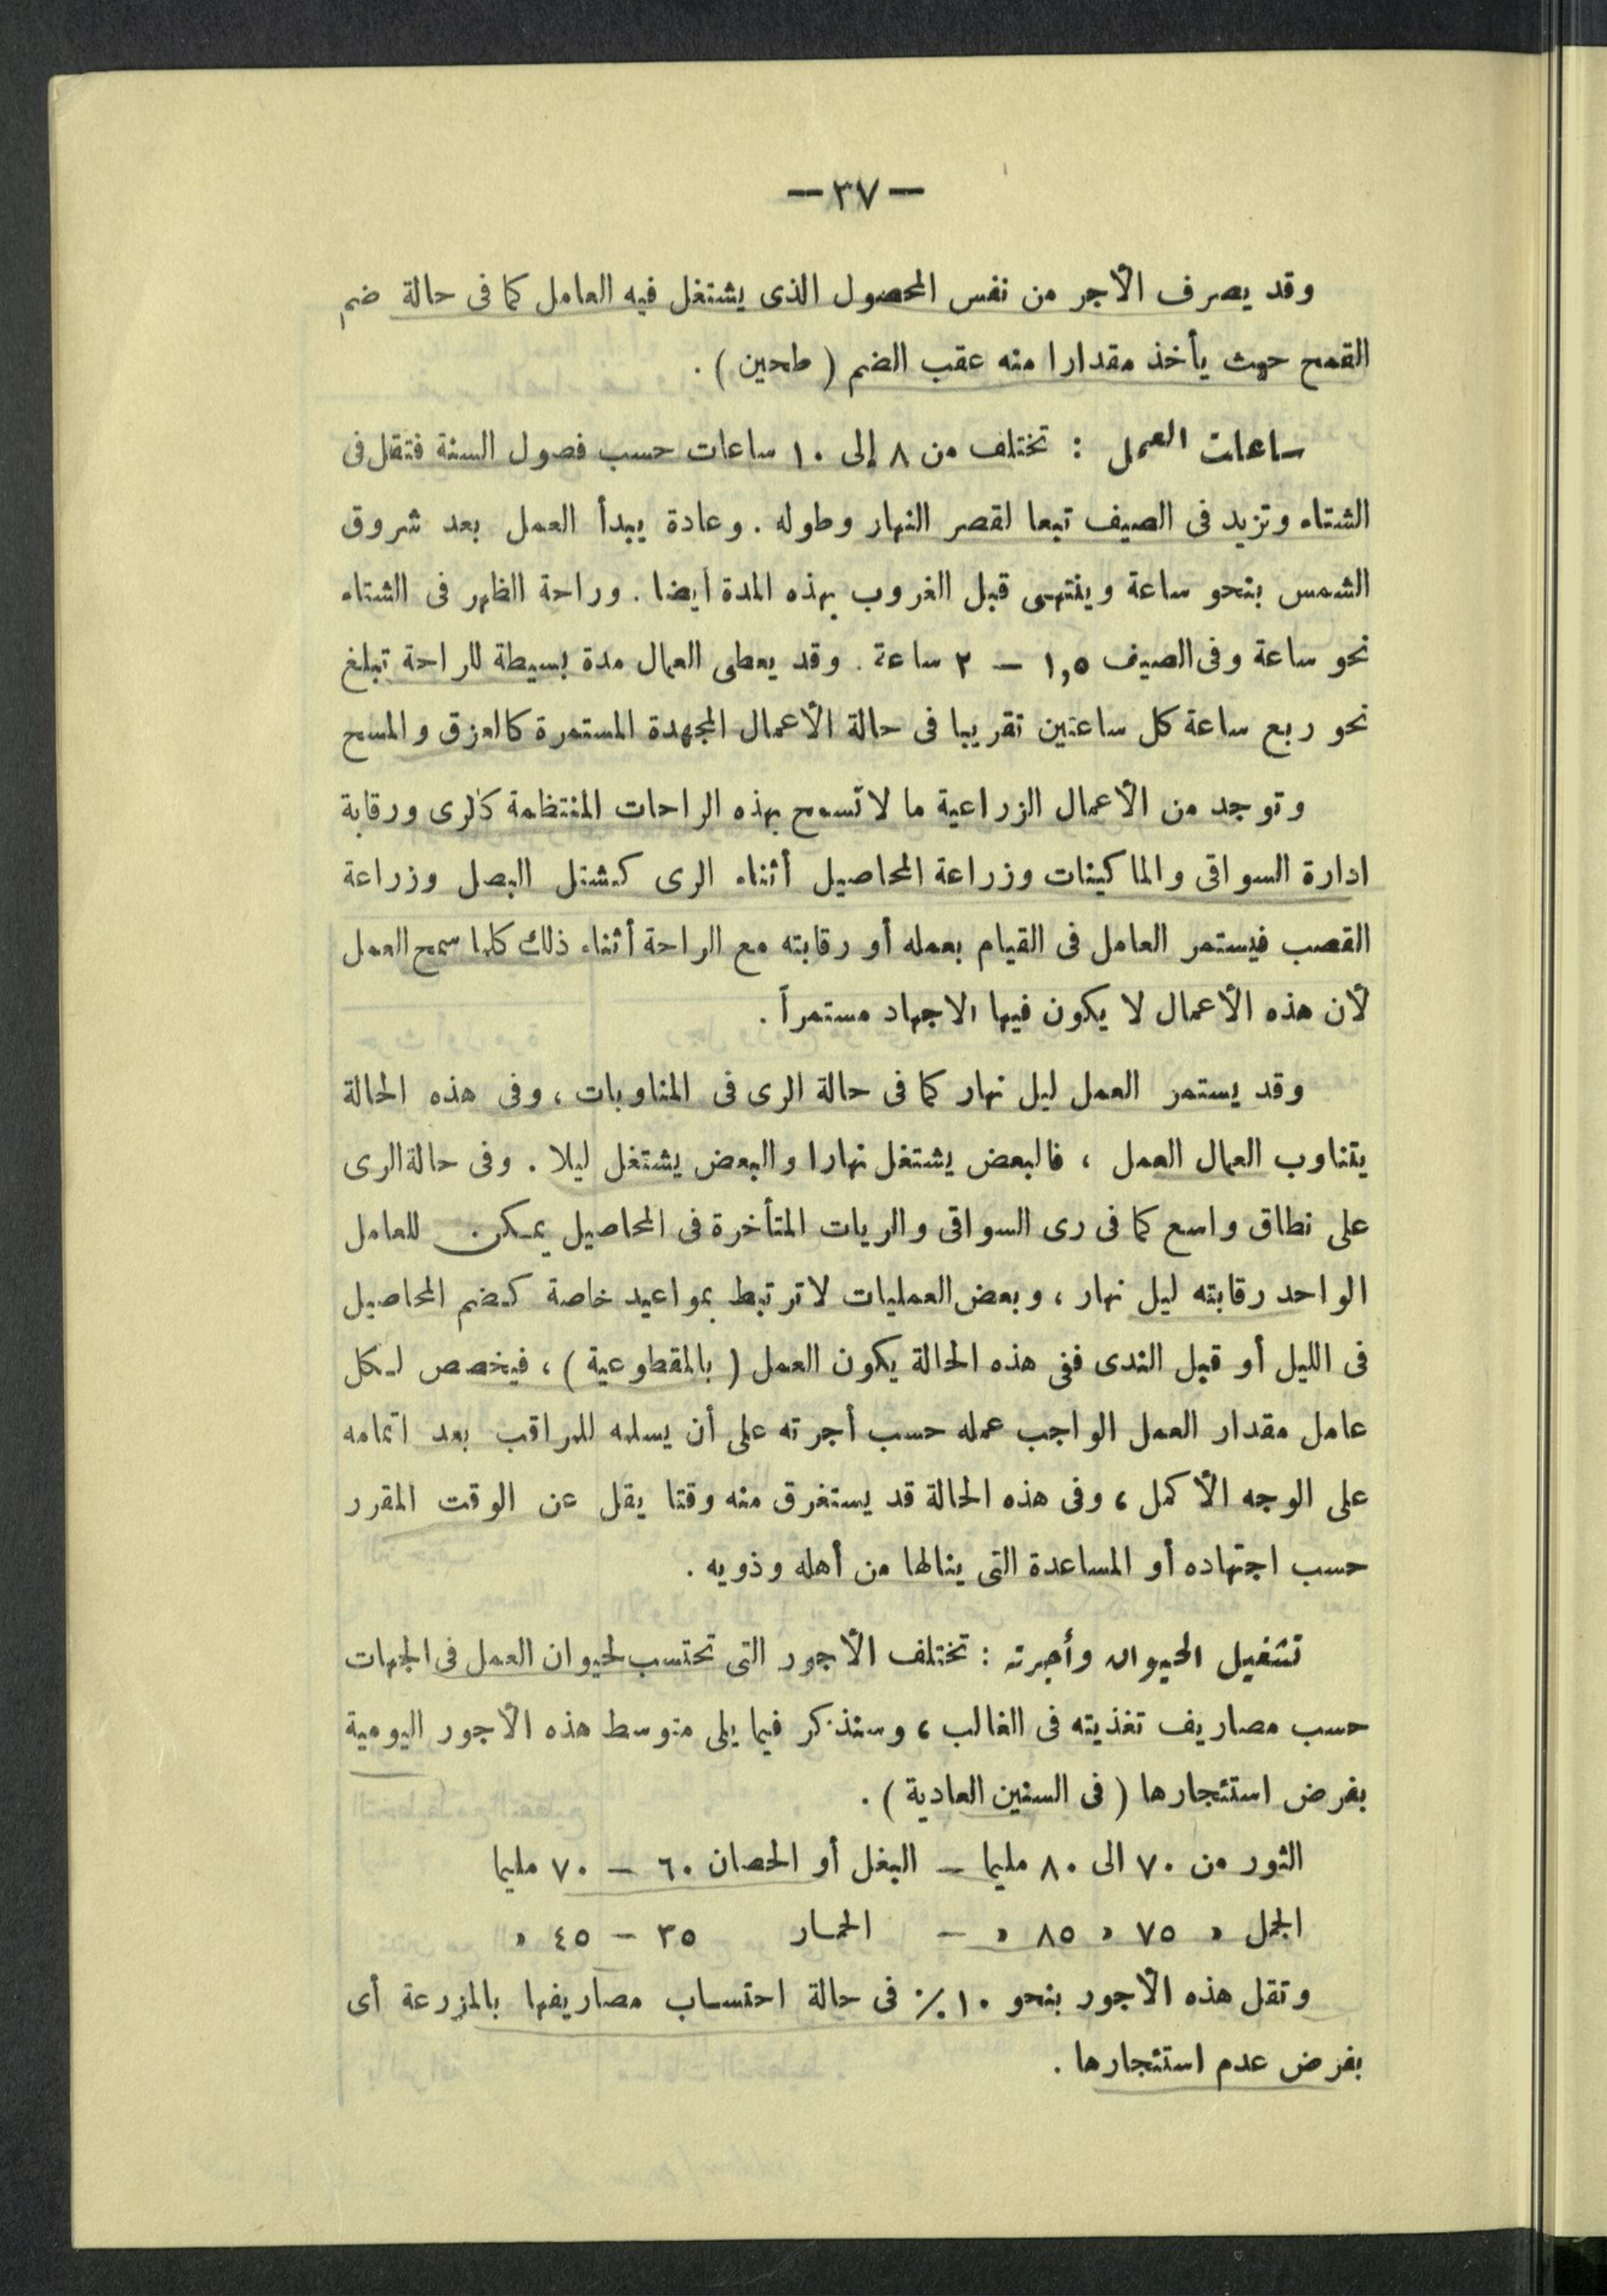 — ٣٧ —
وقد يصرف الأجر من نفس المحصول الذى يشتغل فيه العامل كما فى حالة ضم
القمح حيث يأخذ مقدارا منه عقب الضم ( طحين ) .
ساعات العمل : تختلف من ٨ إلى ١٠ ساعات حسب فصول السنة فتقل فى
الشتاء وتزيد فى الصيف تبعا لقصر النهار وطوله . وعادة يبدأ العمل بعد شروق
الشمس بنحو ساعة وينتهى قبل الغروب بهذه المدة أيضا . وراحة الظهر فى الشتاء
نحو ساعة وفى الصيف ١,٥ — ٢ ساعة . وقد يعطى العمال مدة بسيطة للراحة تبلغ
نحو ربع ساعة كل ساعتين تقريبا فى حالة الأعمال المجهدة المستمرة كالعزق والمسح
وتوجد من الأعمال الزراعية ما لا تسمح بهذه الراحات المنتظمة كالرى ورقابة
ادارة السواقى والماكينات وزراعة المحاصيل أثناء الرى كشتل البصل وزراعة
القصب فيستمر العامل فى القيام بعمله أو رقابته مع الراحة أثناء ذلك كلما سمح العمل
لأن هذه الأعمال لا يكون فيها الاجهاد مستمراً .
وقد يستمر العمل ليل نهار كما فى حالة الرى فى المناوبات ، وفى هذه الحالة
يتناوب العمال العمل ، فالبعض يشتغل نهارا والبعض يشتغل ليلا . وفى حالة الرى
على نطاق واسع كما فى رى السواقى والريات المتأخرة فى المحاصيل يمكن للعامل
الواحد رقابته ليل نهار ، وبعض العمليات لا ترتبط بمواعيد خاصة كضم المحاصيل
فى الليل أو قبل الندى ففى هذه الحالة يكون العمل ( بالمقطوعية ) ، فيخصص لكل
عامل مقدار العمل الواجب عمله حسب أجرته على أن يسلمه للمراقب بعد اتمامه
على الوجه الأكمل ، وفى هذه الحالة قد يستغرق منه وقتا يقل عن الوقت المقرر
حسب اجتهاده أو المساعدة التى ينالها من أهله وذويه .
تشغيل الحيوان وأجرته : تختلف الأجور التى تحتسب لحيوان العمل فى الجهات
حسب مصاريف تغذيته فى الغالب ، وسنذكر فيما يلى متوسط هذه الأجور اليومية
بفرض استئجارها ( فى السنين العادية ) .
الثور من ٧٠ الى ٨٠ مليما — البغل أو الحصان ٦٠ — ٧٠ مليما
الجمل » ٧٥ » ٨٥ » — الحمار ٣٥ — ٤٥ »
وتقل هذه الأجور بنحو ١٠ ٪ فى حالة احتساب مصاريفها بالمزرعة أى
بفرض عدم استئجارها .